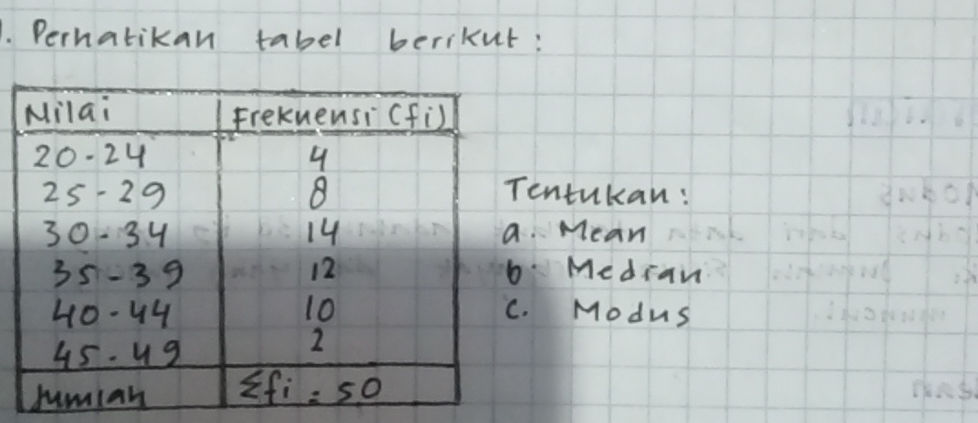 1. Perhatikan tabel berikut:
Nilai Frekuensi (fi)
20-24 4
25-29 8
30-34 14
35-39 12
40-44 10
45-49 2
Jumlah Σfi = 50
Tentukan:
a. Mean
b. Median
c. Modus